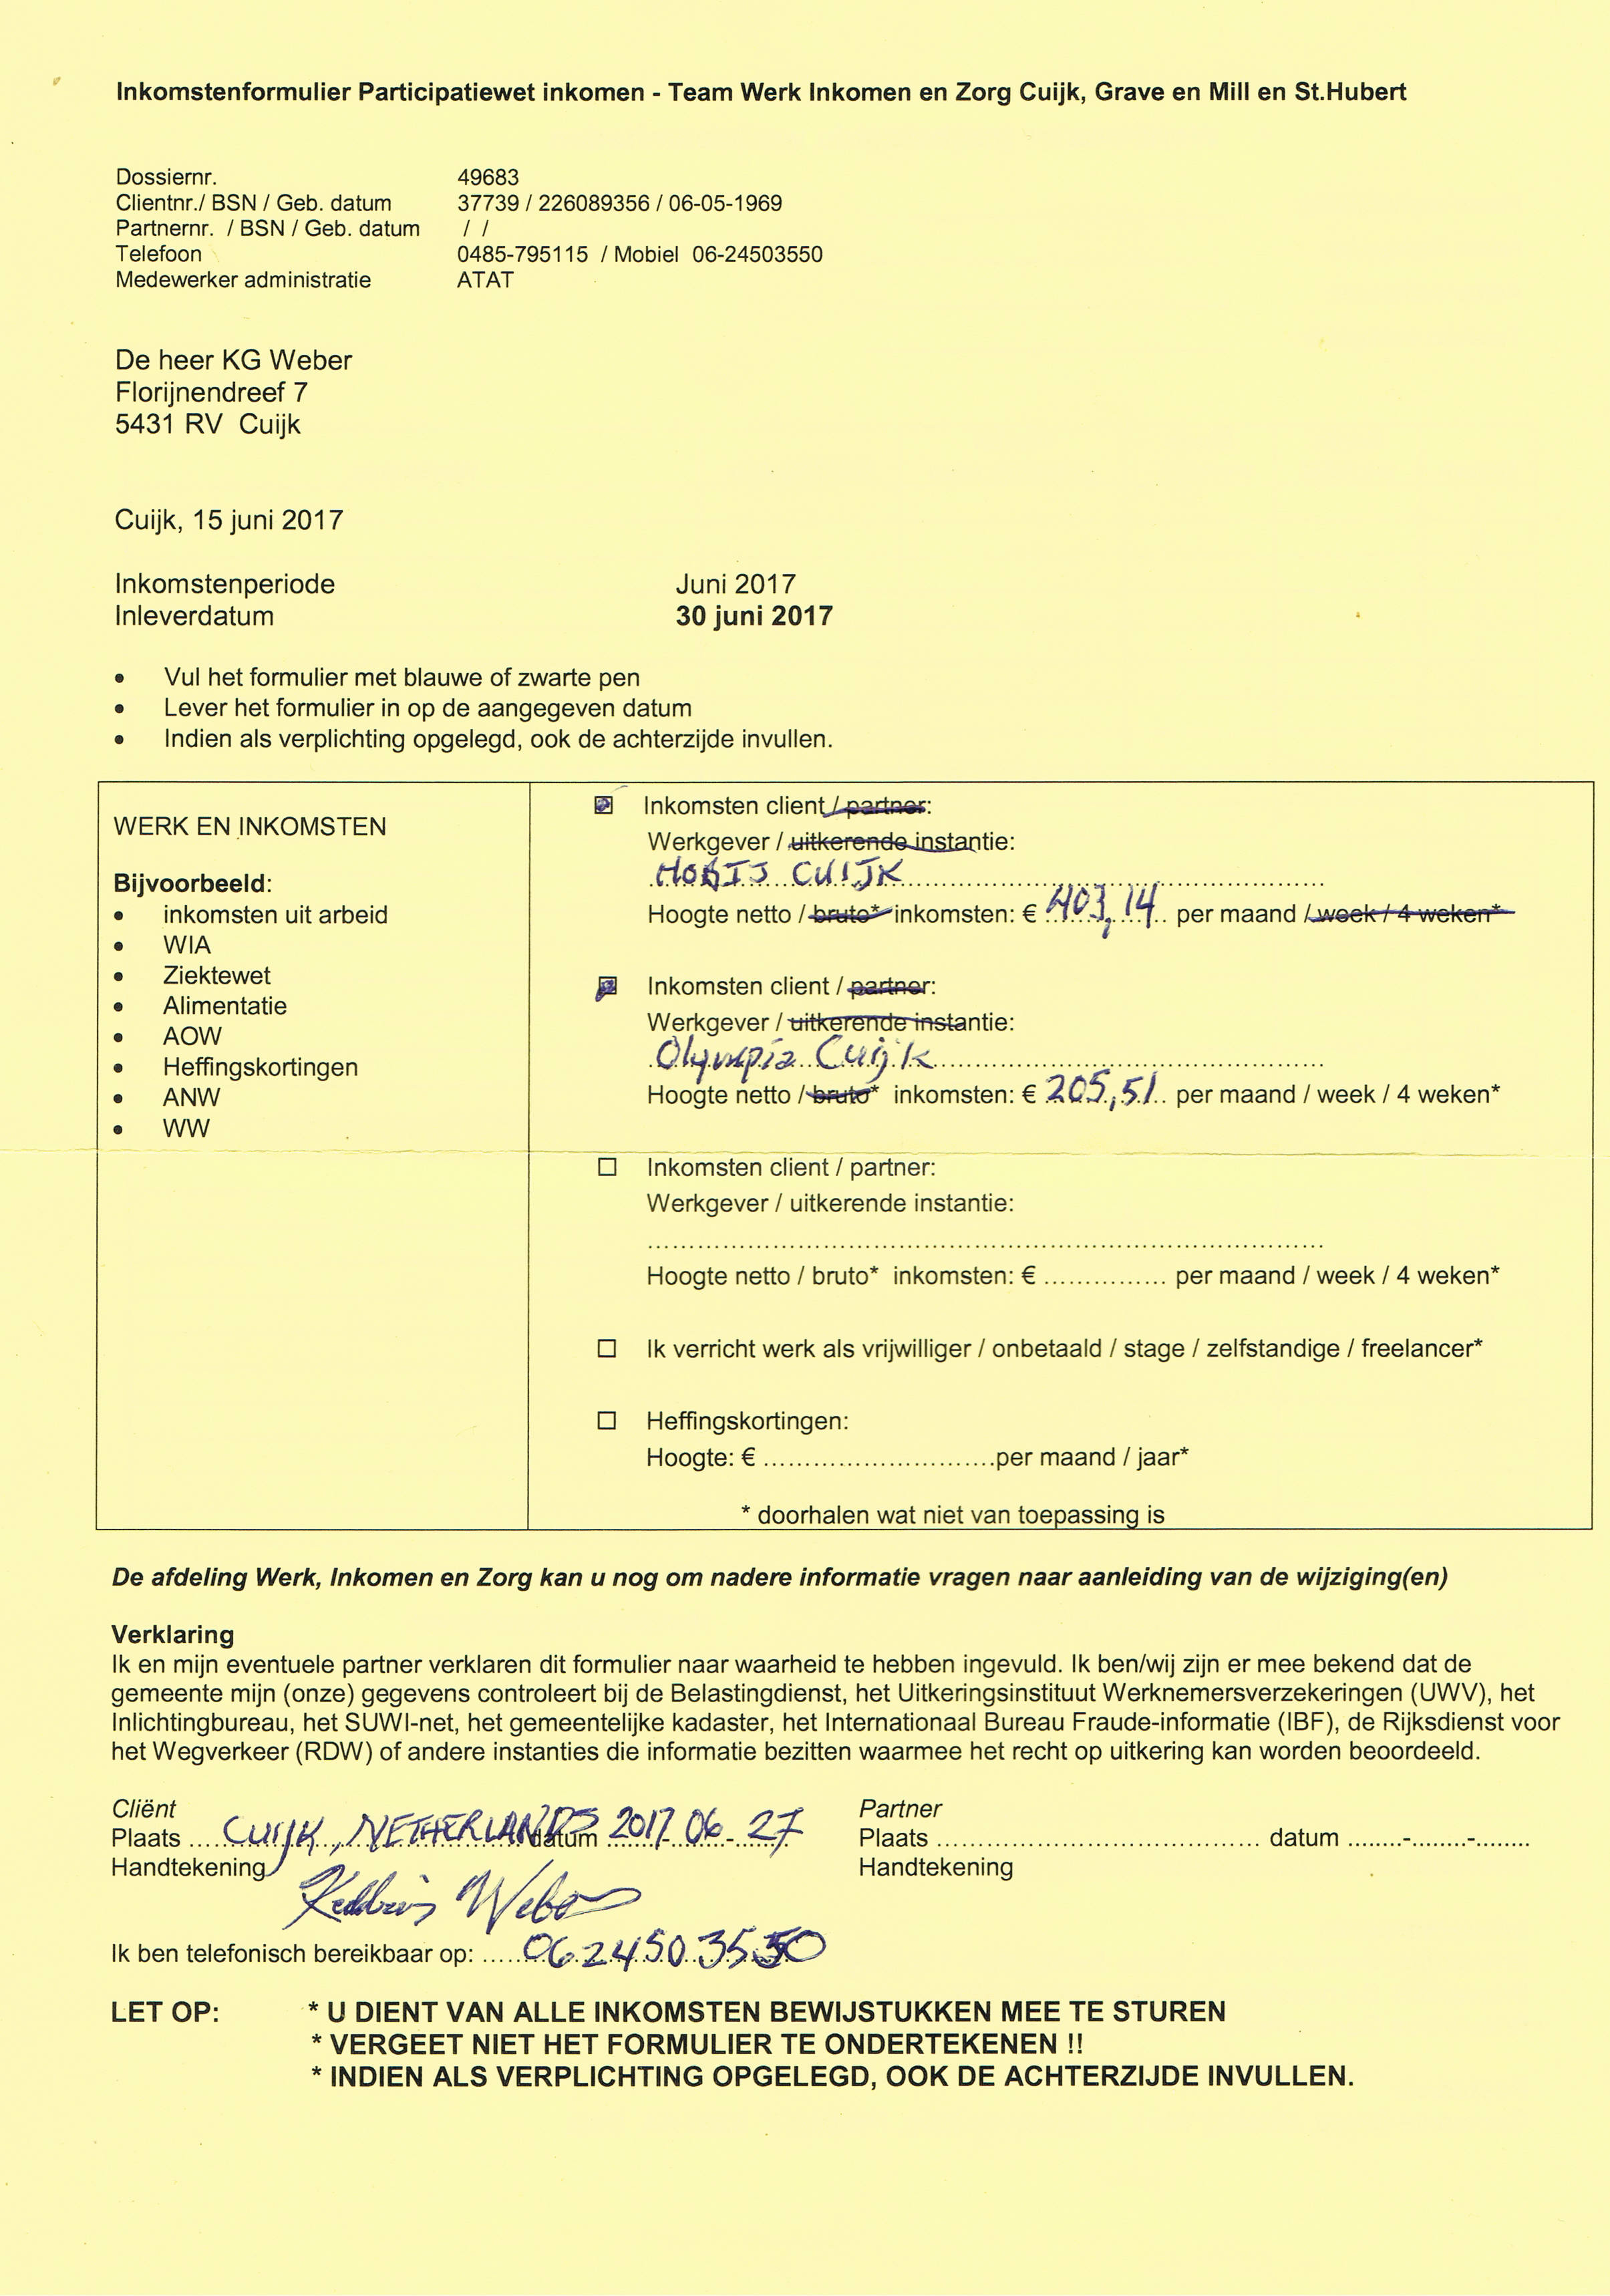 Inkomstenformulier Participatiewet inkomen - Team Werk Inkomen en Zorg Cuijk, Grave en Mill en St.Hubert
Dossiernr. 49683
Clientnr./ BSN / Geb. datum 37739 / 226089356 / 06-05-1969
Partnernr. / BSN / Geb. datum / /
Telefoon 0485-795115 / Mobiel 06-24503550
Medewerker administratie ATAT
De heer KG Weber
Florijnendreef 7
5431 RV Cuijk
Cuijk, 15 juni 2017
Inkomstenperiode Juni 2017
Inleverdatum 30 juni 2017
• Vul het formulier met blauwe of zwarte pen
• Lever het formulier in op de aangegeven datum
• Indien als verplichting opgelegd, ook de achterzijde invullen.
WERK EN INKOMSTEN
Bijvoorbeeld:
• inkomsten uit arbeid
• WIA
• Ziektewet
• Alimentatie
• AOW
• Heffingskortingen
• ANW
• WW
Inkomsten client / partner:
Werkgever / uitkerende instantie:
CUIJK
Hoogte netto / bruto* inkomsten: € 403,14 per maand / week / 4 weken*
Inkomsten client / partner:
Werkgever / uitkerende instantie:
Olympia Cuijk
Hoogte netto / bruto* inkomsten: € 205,51 per maand / week / 4 weken*
☐ Inkomsten client / partner:
Werkgever / uitkerende instantie:
..................................................
Hoogte netto / bruto* inkomsten: € ............... per maand / week / 4 weken*
☐ Ik verricht werk als vrijwilliger / onbetaald / stage / zelfstandige / freelancer*
☐ Heffingskortingen:
Hoogte: € ............................per maand / jaar*
* doorhalen wat niet van toepassing is
De afdeling Werk, Inkomen en Zorg kan u nog om nadere informatie vragen naar aanleiding van de wijziging(en)
Verklaring
Ik en mijn eventuele partner verklaren dit formulier naar waarheid te hebben ingevuld. Ik ben/wij zijn er mee bekend dat de
gemeente mijn (onze) gegevens controleert bij de Belastingdienst, het Uitkeringsinstituut Werknemersverzekeringen (UWV), het
Inlichtingbureau, het SUWI-net, het gemeentelijke kadaster, het Internationaal Bureau Fraude-informatie (IBF), de Rijksdienst voor
het Wegverkeer (RDW) of andere instanties die informatie bezitten waarmee het recht op uitkering kan worden beoordeeld.
Cliënt
Plaats CUIJK, NETHERLANDS datum 2017-06-27
Handtekening
Weber
Partner
Plaats ....................................... datum ........-........-........
Handtekening
Ik ben telefonisch bereikbaar op: 0624503550
LET OP: * U DIENT VAN ALLE INKOMSTEN BEWIJSTUKKEN MEE TE STUREN
* VERGEET NIET HET FORMULIER TE ONDERTEKENEN !!
* INDIEN ALS VERPLICHTING OPGELEGD, OOK DE ACHTERZIJDE INVULLEN.